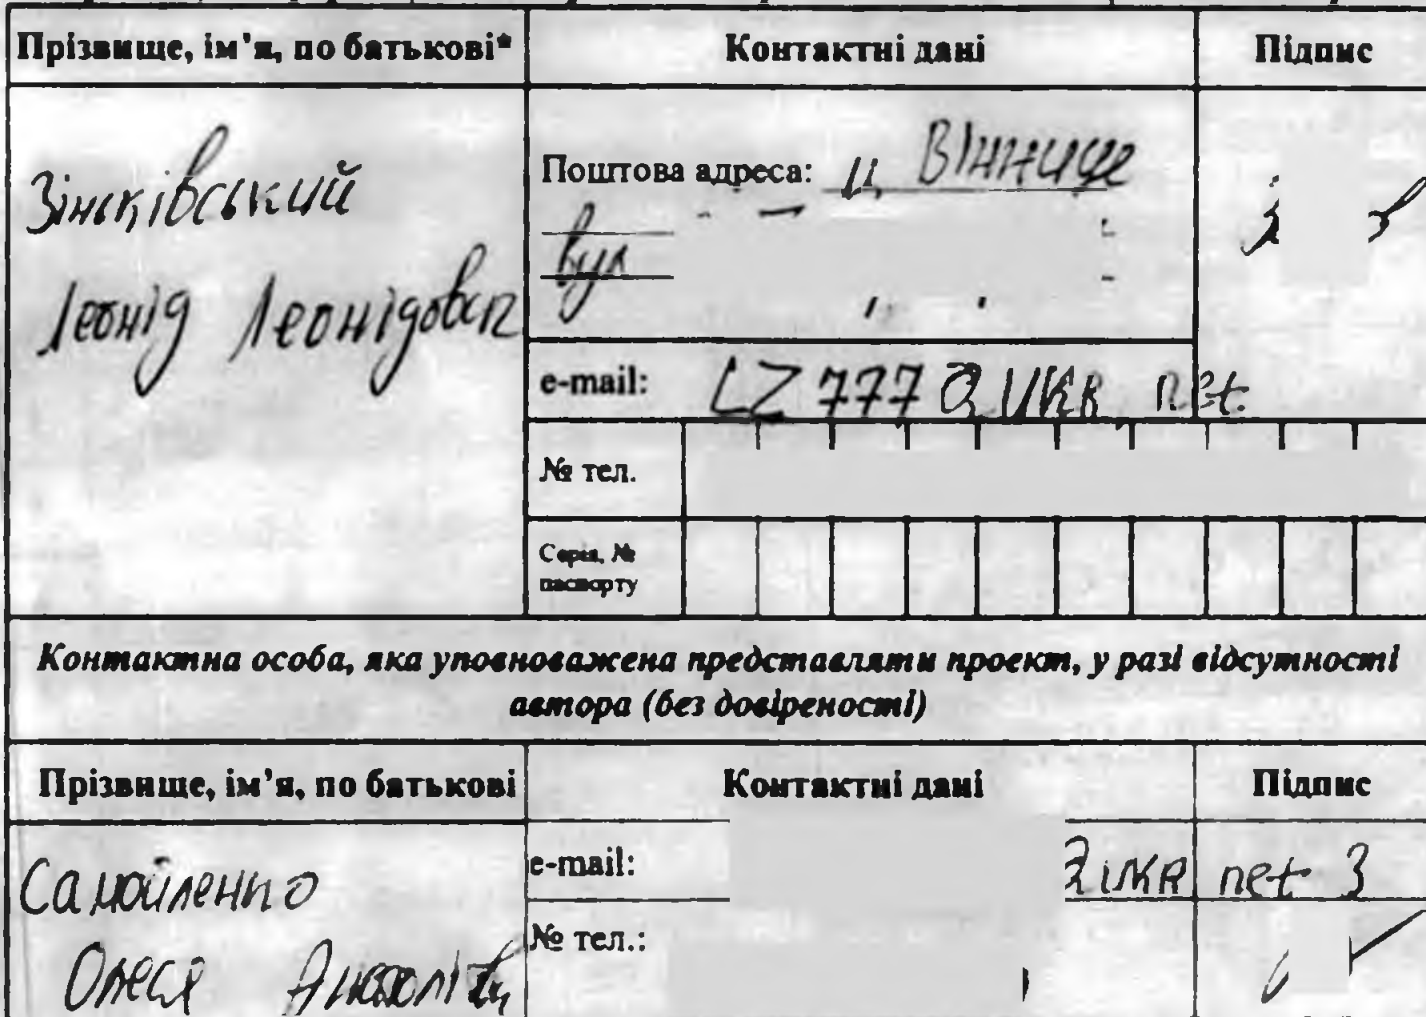 Прізвище, ім'я, по батькові* Контактні дані Підпис
Зінськівський
Леонід Леонідович
Поштова адреса: м. Вінниця
вул
e-mail: LZ777@UKR.net
№ тел.
Серія, № паспорту
Контактна особа, яка уповноважена представляти проект, у разі відсутності
автора (без довіреності)
Прізвище, ім'я, по батькові Контактні дані Підпис
Самойленко
Олеся
e-mail: @UKR net
№ тел.: